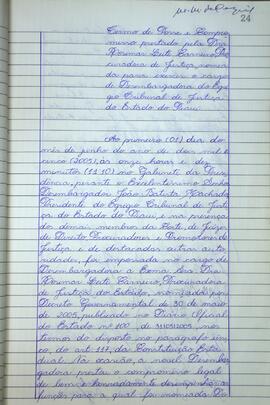 24
Termo de Posse e Compro-
misso prestado pela Dra.
Rosimar Leite Carneiro, Pro-
curadora de Justiça, nomea-
da para exercer o cargo
de Desembargadora do Egré-
gio Tribunal de Justiça
do Estado do Piauí.
Ao primeiro (01) dia do
mês de junho do ano de dois mil e
cinco (2005), às onze horas e dez
minutos (11:10) no Gabinete da Presi-
dência, perante o Excelentíssimo Senhor
Desembargador João Batista Machado,
Presidente do Egrégio Tribunal de Justi-
ça do Estado do Piauí e na presença
dos demais membros da Corte, de Juízes
de Direito, Procuradores e Promotores de
Justiça e de destacadas outras auto-
ridades, foi empossada no cargo de
Desembargadora a Exma. Sra. Dra.
Rosimar Leite Carneiro, Procuradora
de Justiça do Estado, nomeada por
Decreto Governamental de 30 de maio
de 2005, publicado no Diário Oficial
do Estado nº 100, de 31/05/2005, nos
termos do disposto no parágrafo úni-
co, do art. 117, da Constituição Esta-
dual. Na ocasião, a novel Desembar-
gadora prestou o compromisso legal
de bem e honradamente desempenhar as
funções para a qual foi nomeada. Do